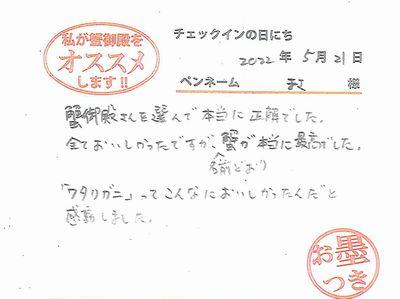 私が蟹御殿を
オススメ
します!!
チェックインの日にち
2022年5月21日
ペンネーム 様
蟹御殿さんを選んで本当に正解でした。
全ておいしかったですが、蟹が本当に最高でした。
名前どおり
「ワタリガニ」ってこんなにおいしかったんだと
感動しました。
お墨
つき